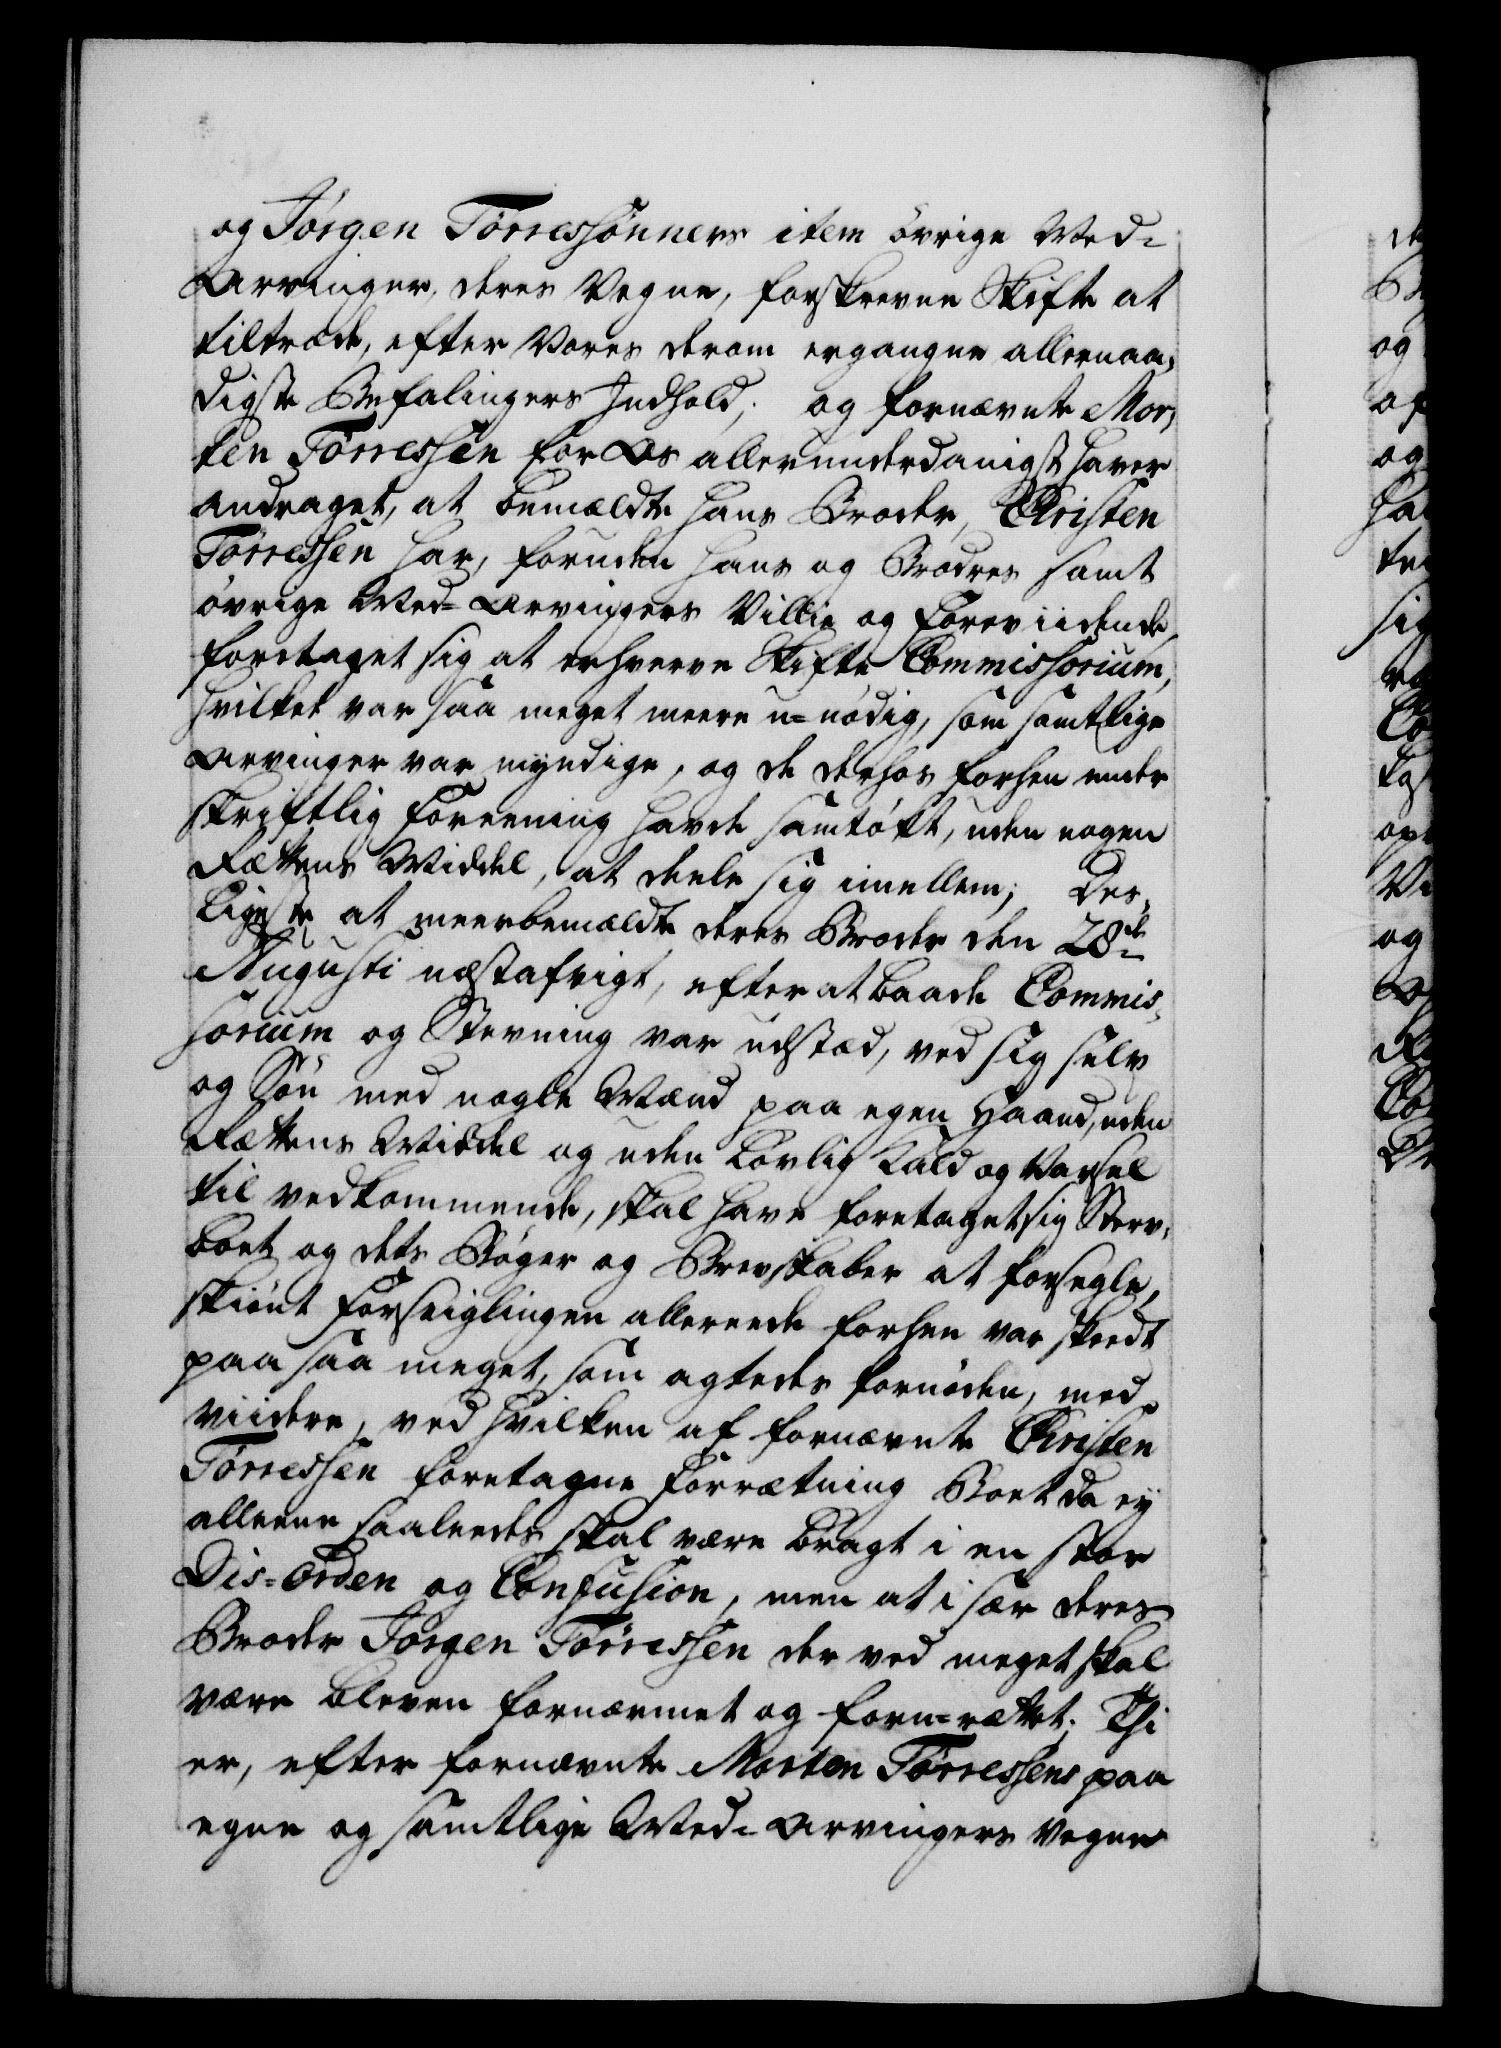 og Jørgen Tørresønners item øvrige Med-
Arvinger, deres Vegne, forskrevne Skifte at
tiltræde, efter Vores derom ergangne allernaa-
digste Befalingers Indhold; og fornævnte Mor-
ten Tørressen for Os allerunderdanigst haver
andraget, at bemældte hans Broder, Christen
Tørressen har, foruden hans og Brødres samt
øvrige Med-Arvingers Villie og Forevidende,
foretaget sig at erhverve Skifte Commissorium,
hvilket var saa meget meere u-nødig, som samtlige
Arvinger var myndige, og de derhos forhen under
skriftlig Foreening havde samtøkt, uden nogen
Rættens Middel, at deele sig imellem; Des-
ligeste at meerbemældte deres Broder den 28de
Augusti næstafvigt, efter at baade Commis-
sorium og Stevning var udstæd, ved sig selv
og Søn med nogle Mænd paa egen Haand, uden
Rættens Middel og uden Lovlig Kald og Varsel
til vedkommende, skal have foretaget sig Sterv-
boet og dets Bøger og Brevskaber at forsegle,
skiønt Forseiglingen allereede forhen var skeedt
paa saa meget, som agtedes fornøden, med
viidere, ved hvilken af fornævnte Christen
Tørressen foretagne Forrætning Boet da ey
alleene saaleedes skal være bragt i en stor
Dis-Orden og Confusion, men at i sær deres
Broder Jørgen Tørressen der ved meget skal
være bleven fornærmet og foru-rættet; Thi
er, efter fornævnte Morten Tørressens paa
egne og samtlige Med-Arvingers Vegne